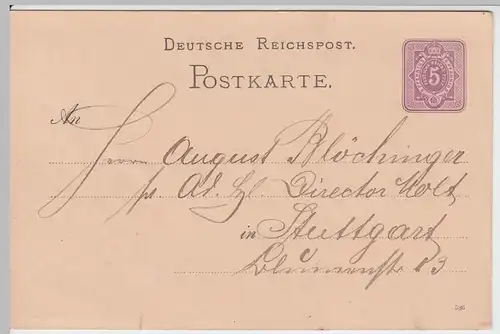 DEUTSCHE REICHSPOST.
POSTKARTE.
5
An
Herrn August Blöchinger
Ad. Director Holt
in Stuttgart
Blumenstr 13